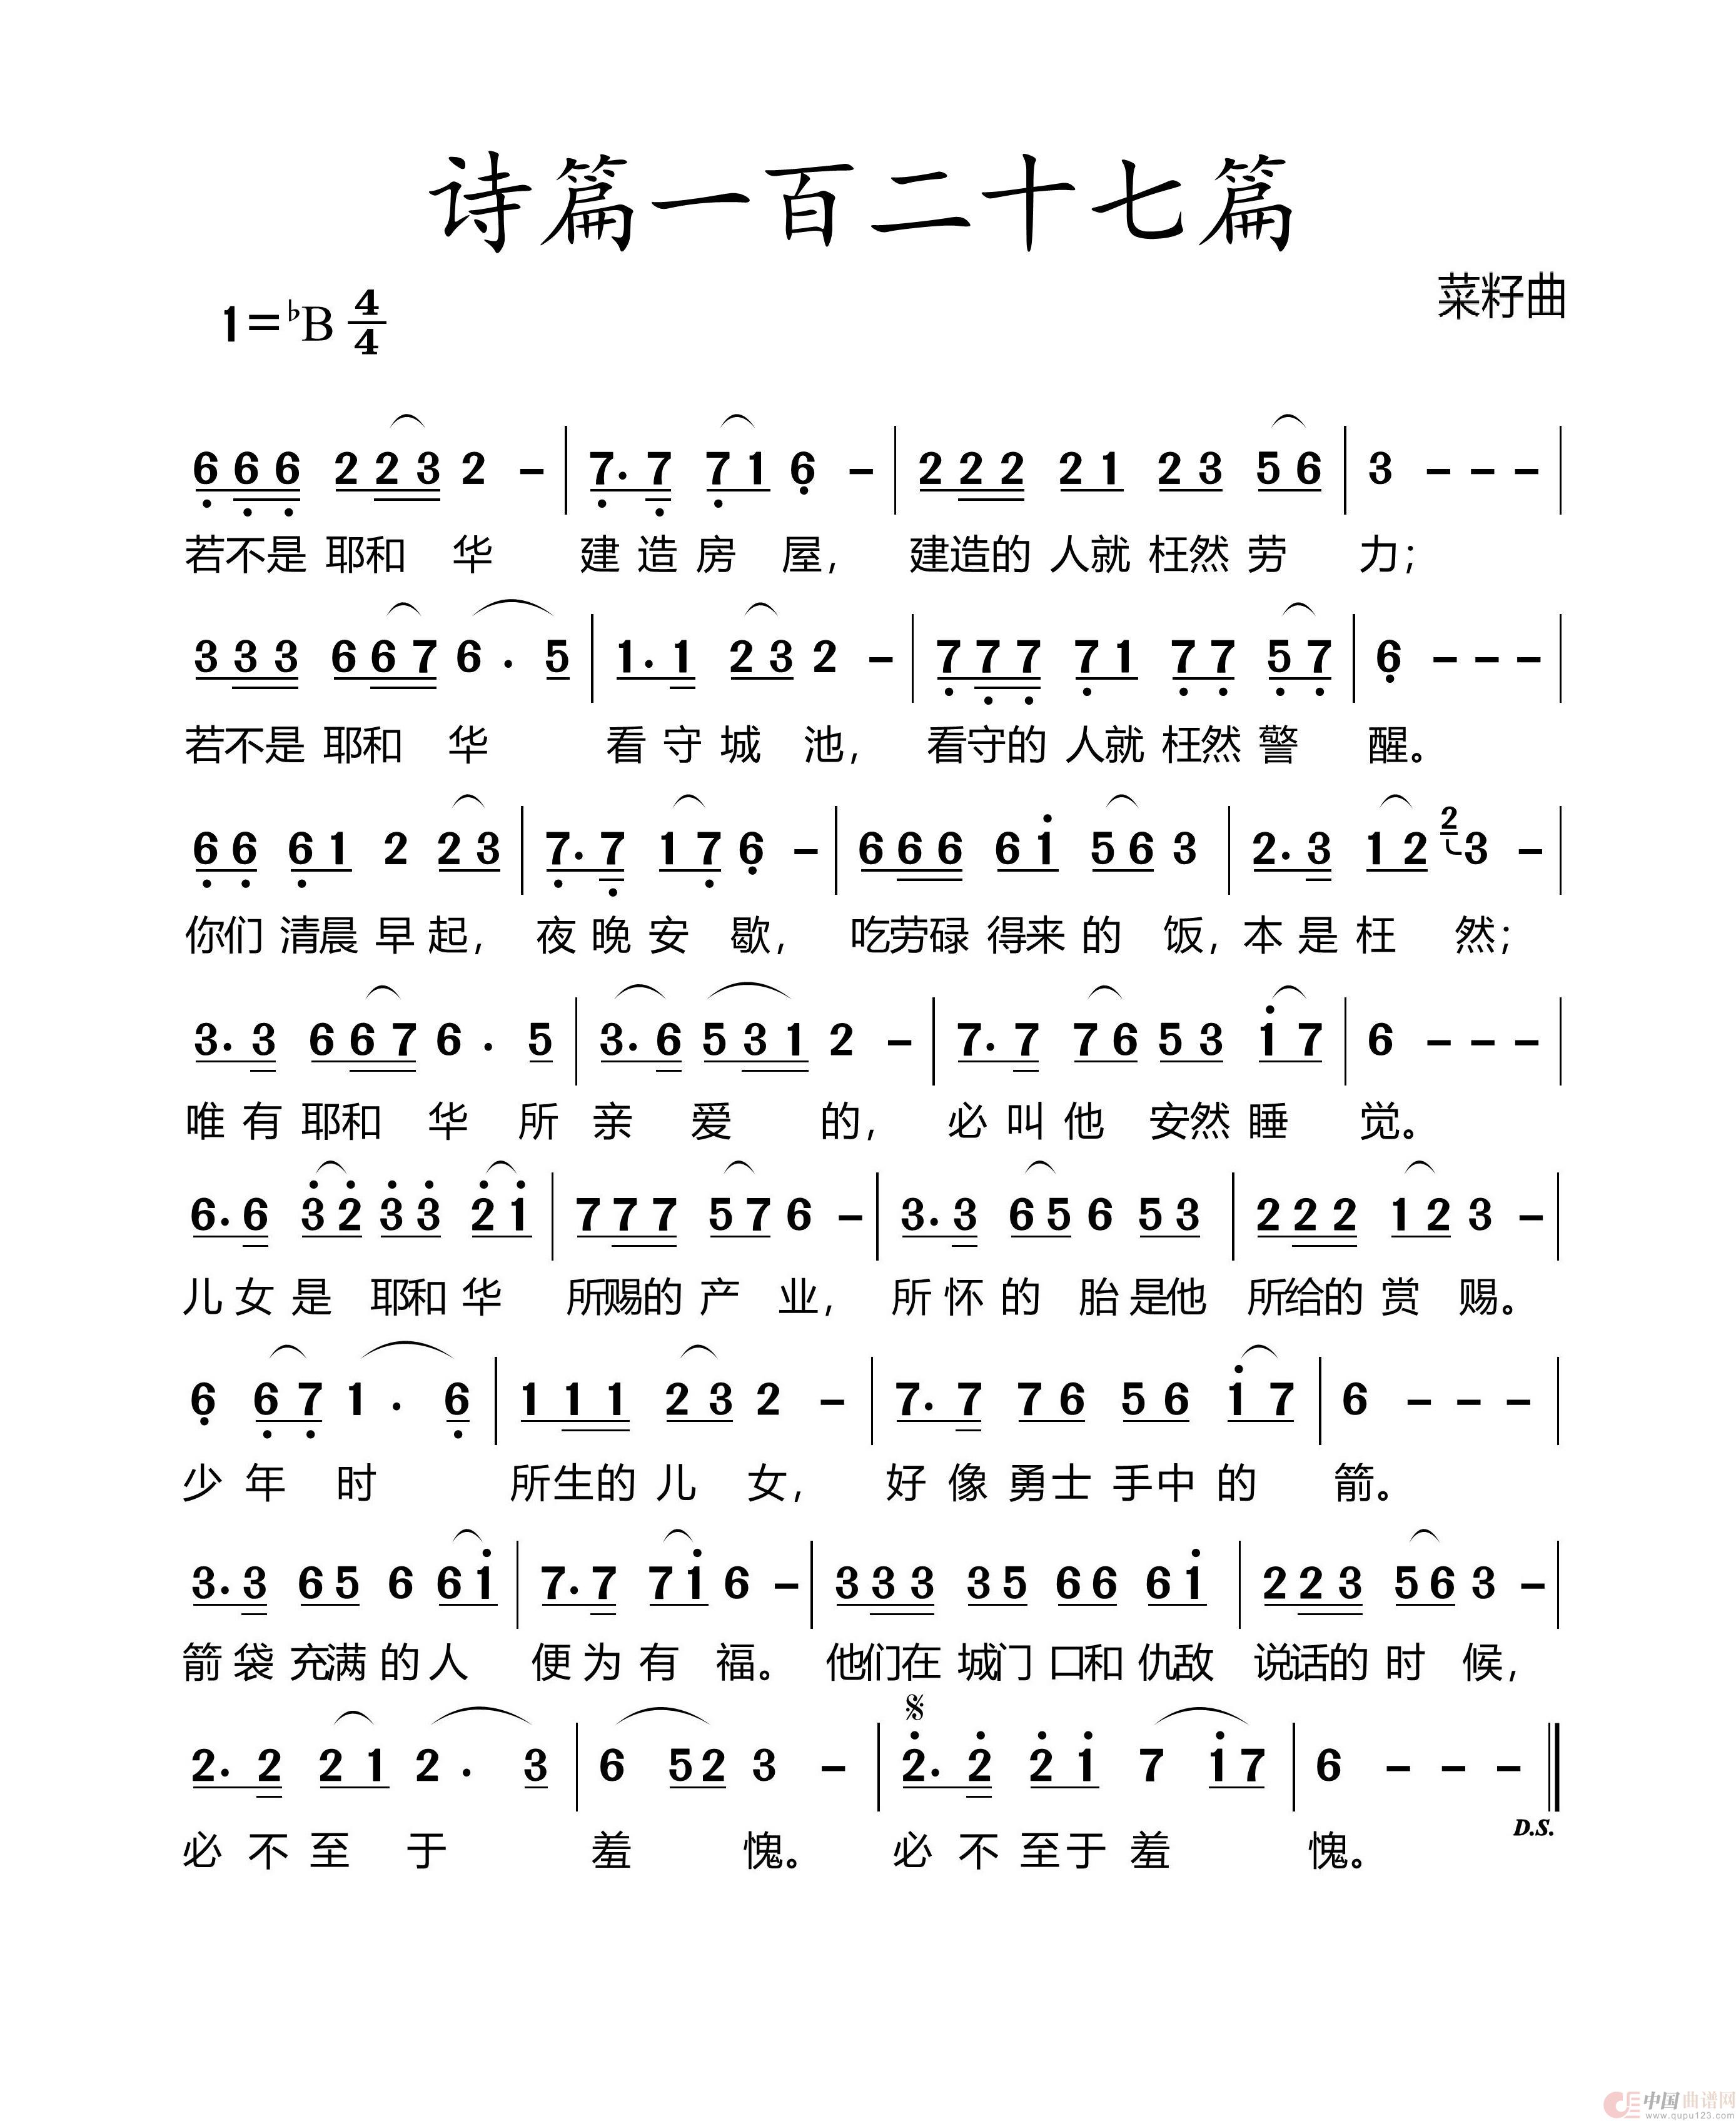 诗篇一百二十七篇
菜籽曲
1=♭B 4/4
6 6 6 2 2 3 2 – | 7. 7 7 1 6 – | 2 2 2 2 1 2 3 5 6 | 3 – – – |
若不是 耶和 华 建 造 房 屋， 建造的 人就 枉然 劳 力；
3 3 3 6 6 7 6 . 5 | 1. 1 2 3 2 – | 7 7 7 7 1 7 7 5 7 | 6 – – – |
若不是 耶和 华 看 守 城 池， 看守的 人就 枉然 警 醒。
6 6 6 1 2 2 3 | 7. 7 1 7 6 – | 6 6 6 6 1 5 6 3 | 2. 3 1 2 2 3 – |
你们 清晨 早 起， 夜 晚 安 歇， 吃劳碌 得来 的 饭， 本 是 枉 然；
3. 3 6 6 7 6 . 5 | 3. 6 5 3 1 2 – | 7. 7 7 6 5 3 1 7 | 6 – – – |
唯 有 耶和 华 所 亲 爱 的， 必 叫 他 安然 睡 觉。
6. 6 3 2 3 3 2 1 | 7 7 7 5 7 6 – | 3. 3 6 5 6 5 3 | 2 2 2 1 2 3 – |
儿 女 是 耶和 华 所赐的 产 业， 所 怀 的 胎 是他 所给的 赏 赐。
6 6 7 1 . 6 | 1 1 1 2 3 2 – | 7. 7 7 6 5 6 1 7 | 6 – – – |
少 年 时 所生的 儿 女， 好 像 勇士 手中 的 箭。
3. 3 6 5 6 6 1 | 7. 7 7 1 6 – | 3 3 3 3 5 6 6 6 1 | 2 2 3 5 6 3 – |
箭 袋 充满 的 人 便 为 有 福。 他们在 城门 口和 仇敌 说话的 时 候，
2. 2 2 1 2 . 3 | 6 5 2 3 – | 2. 2 2 1 7 1 7 | 6 – – – ‖
D.S.
必 不 至 于 羞 愧。 必 不 至于 羞 愧。
中国曲谱网
www.qupu123.com